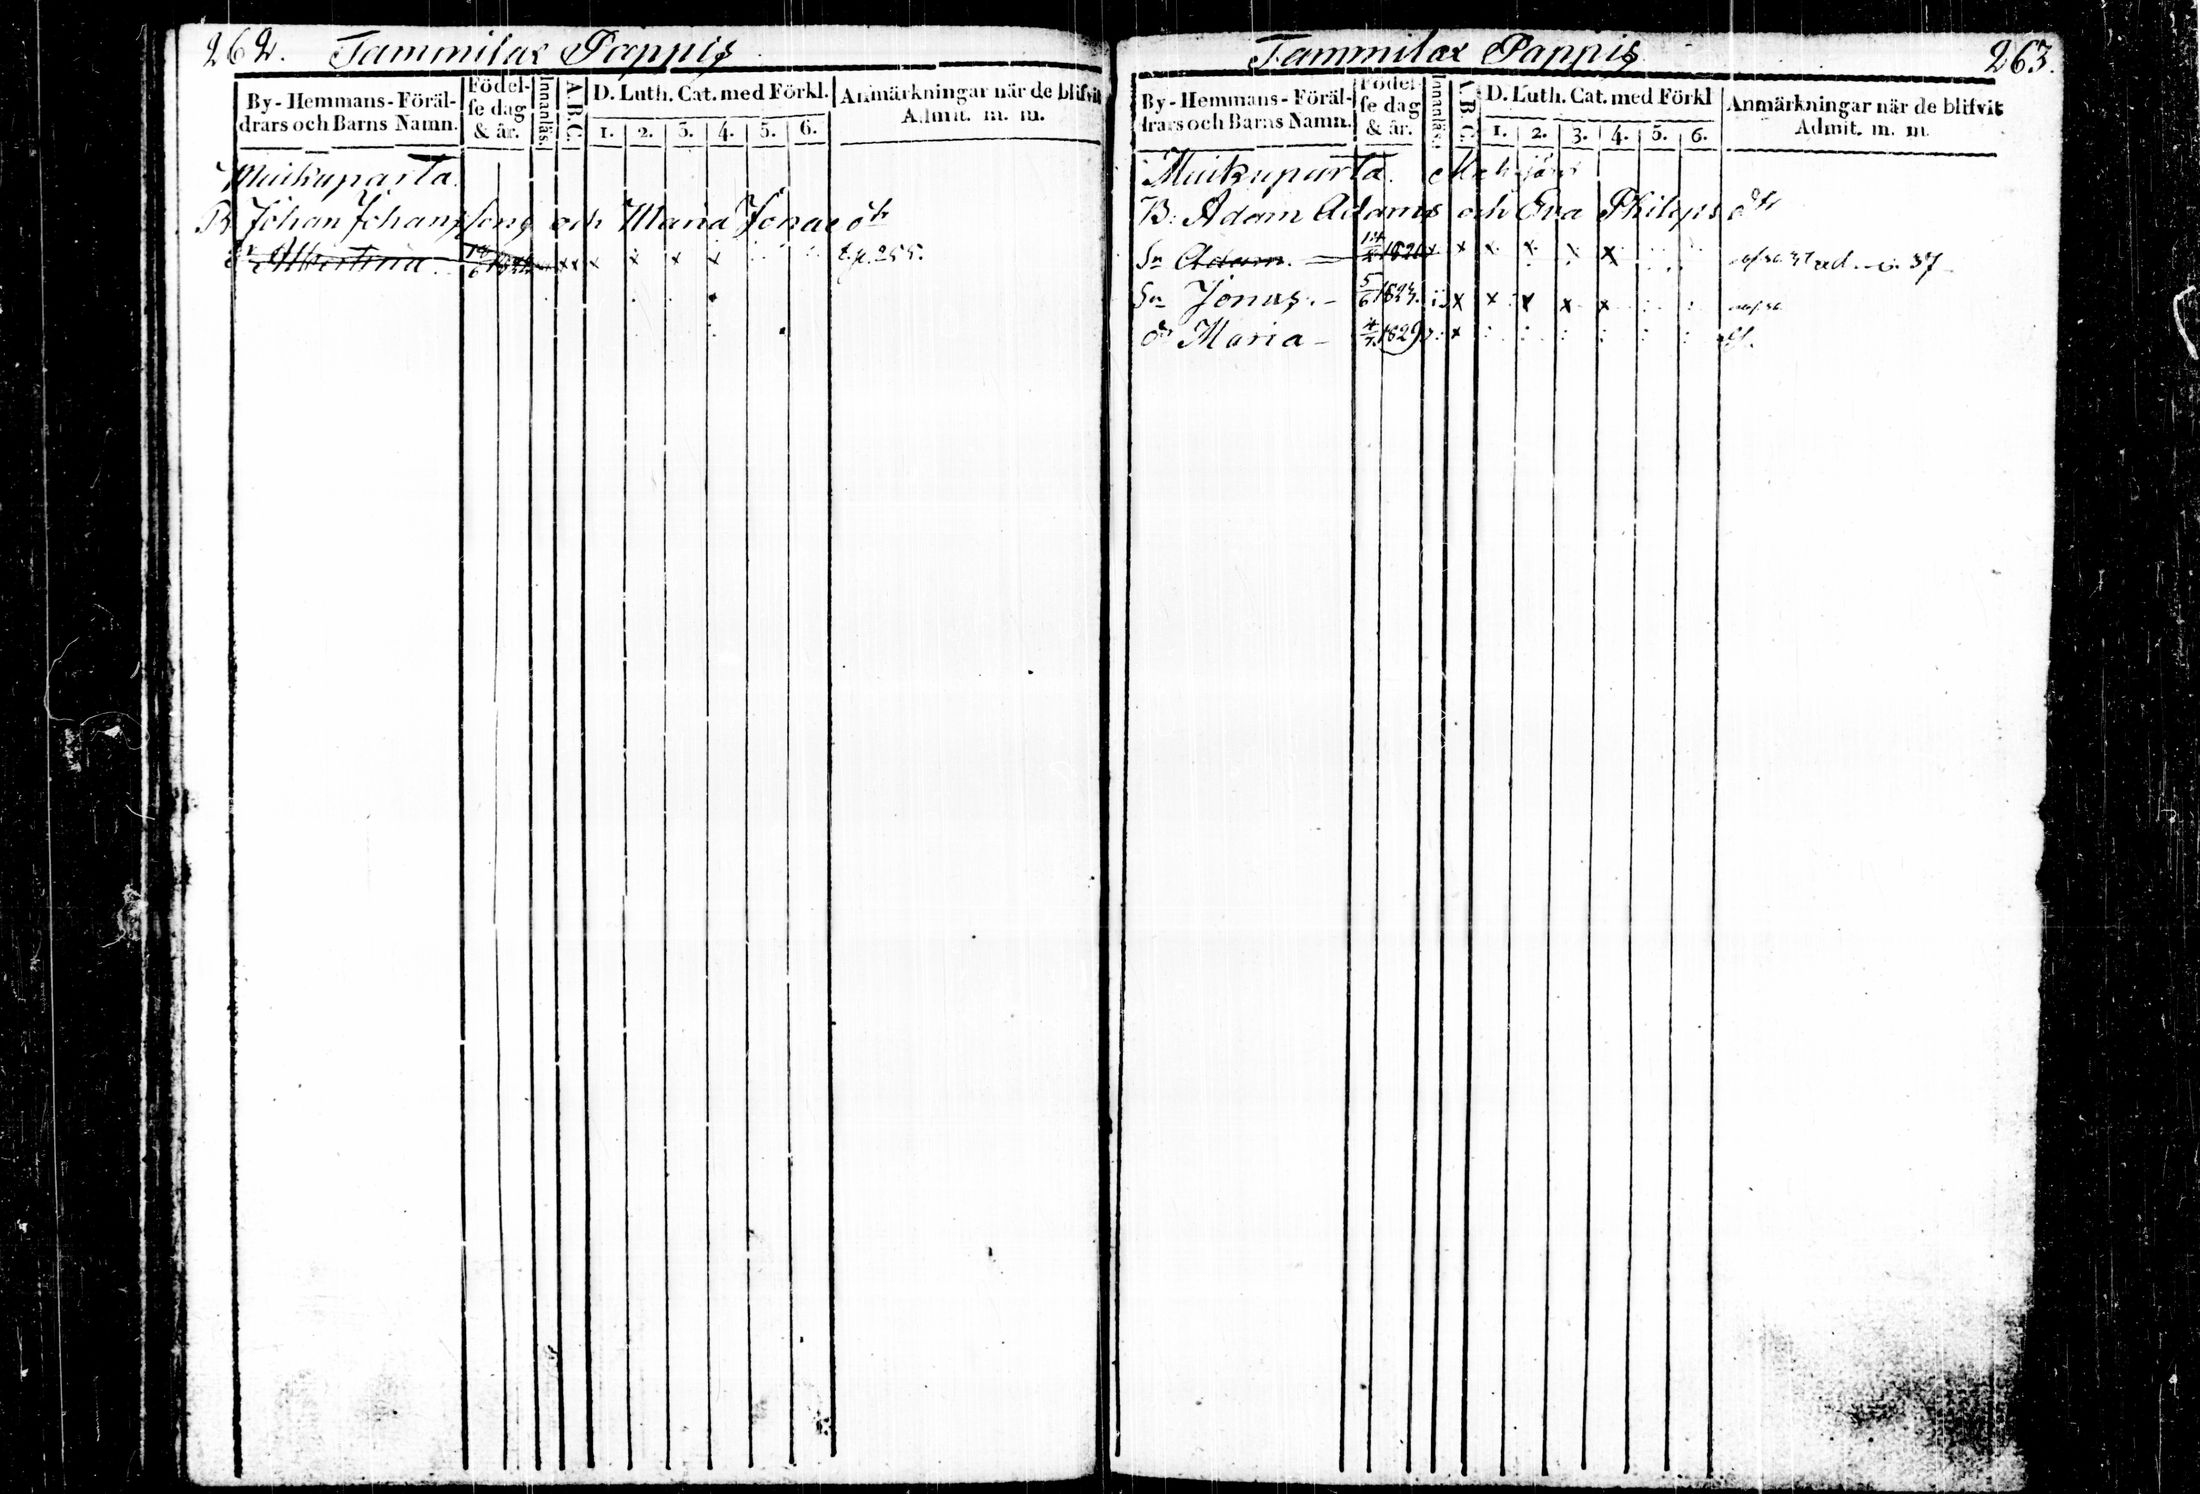 262. Tammilax Pappis
By-Hemmans-Föräl-
drars och Barns Namn.
Födel-
se dag
& år.
Innanläs.
A.B.C.
D. Luth. Cat. med Förkl.
1. 2. 3. 4. 5. 6.
Anmärkningar när de blifvit
Admit. m. m.
Muikuparta
B Johan Johansson och Maria Jonae dr
dr Albertina x x x x x x t.p. 255.
Tammilax Pappis 263.
By-Hemmans-Föräl-
drars och Barns Namn.
Födel-
se dag
& år.
Innanläs.
A.B.C.
D. Luth. Cat. med Förkl
1. 2. 3. 4. 5. 6.
Anmärkningar när de blifvit
Admit. m. m.
Muikuparta.
B: Adam Adams och Eva Philips dr
Sn Adam. 37
Sn Jonas. 5/6 x x x x x
dr Maria 4/7 1829 x